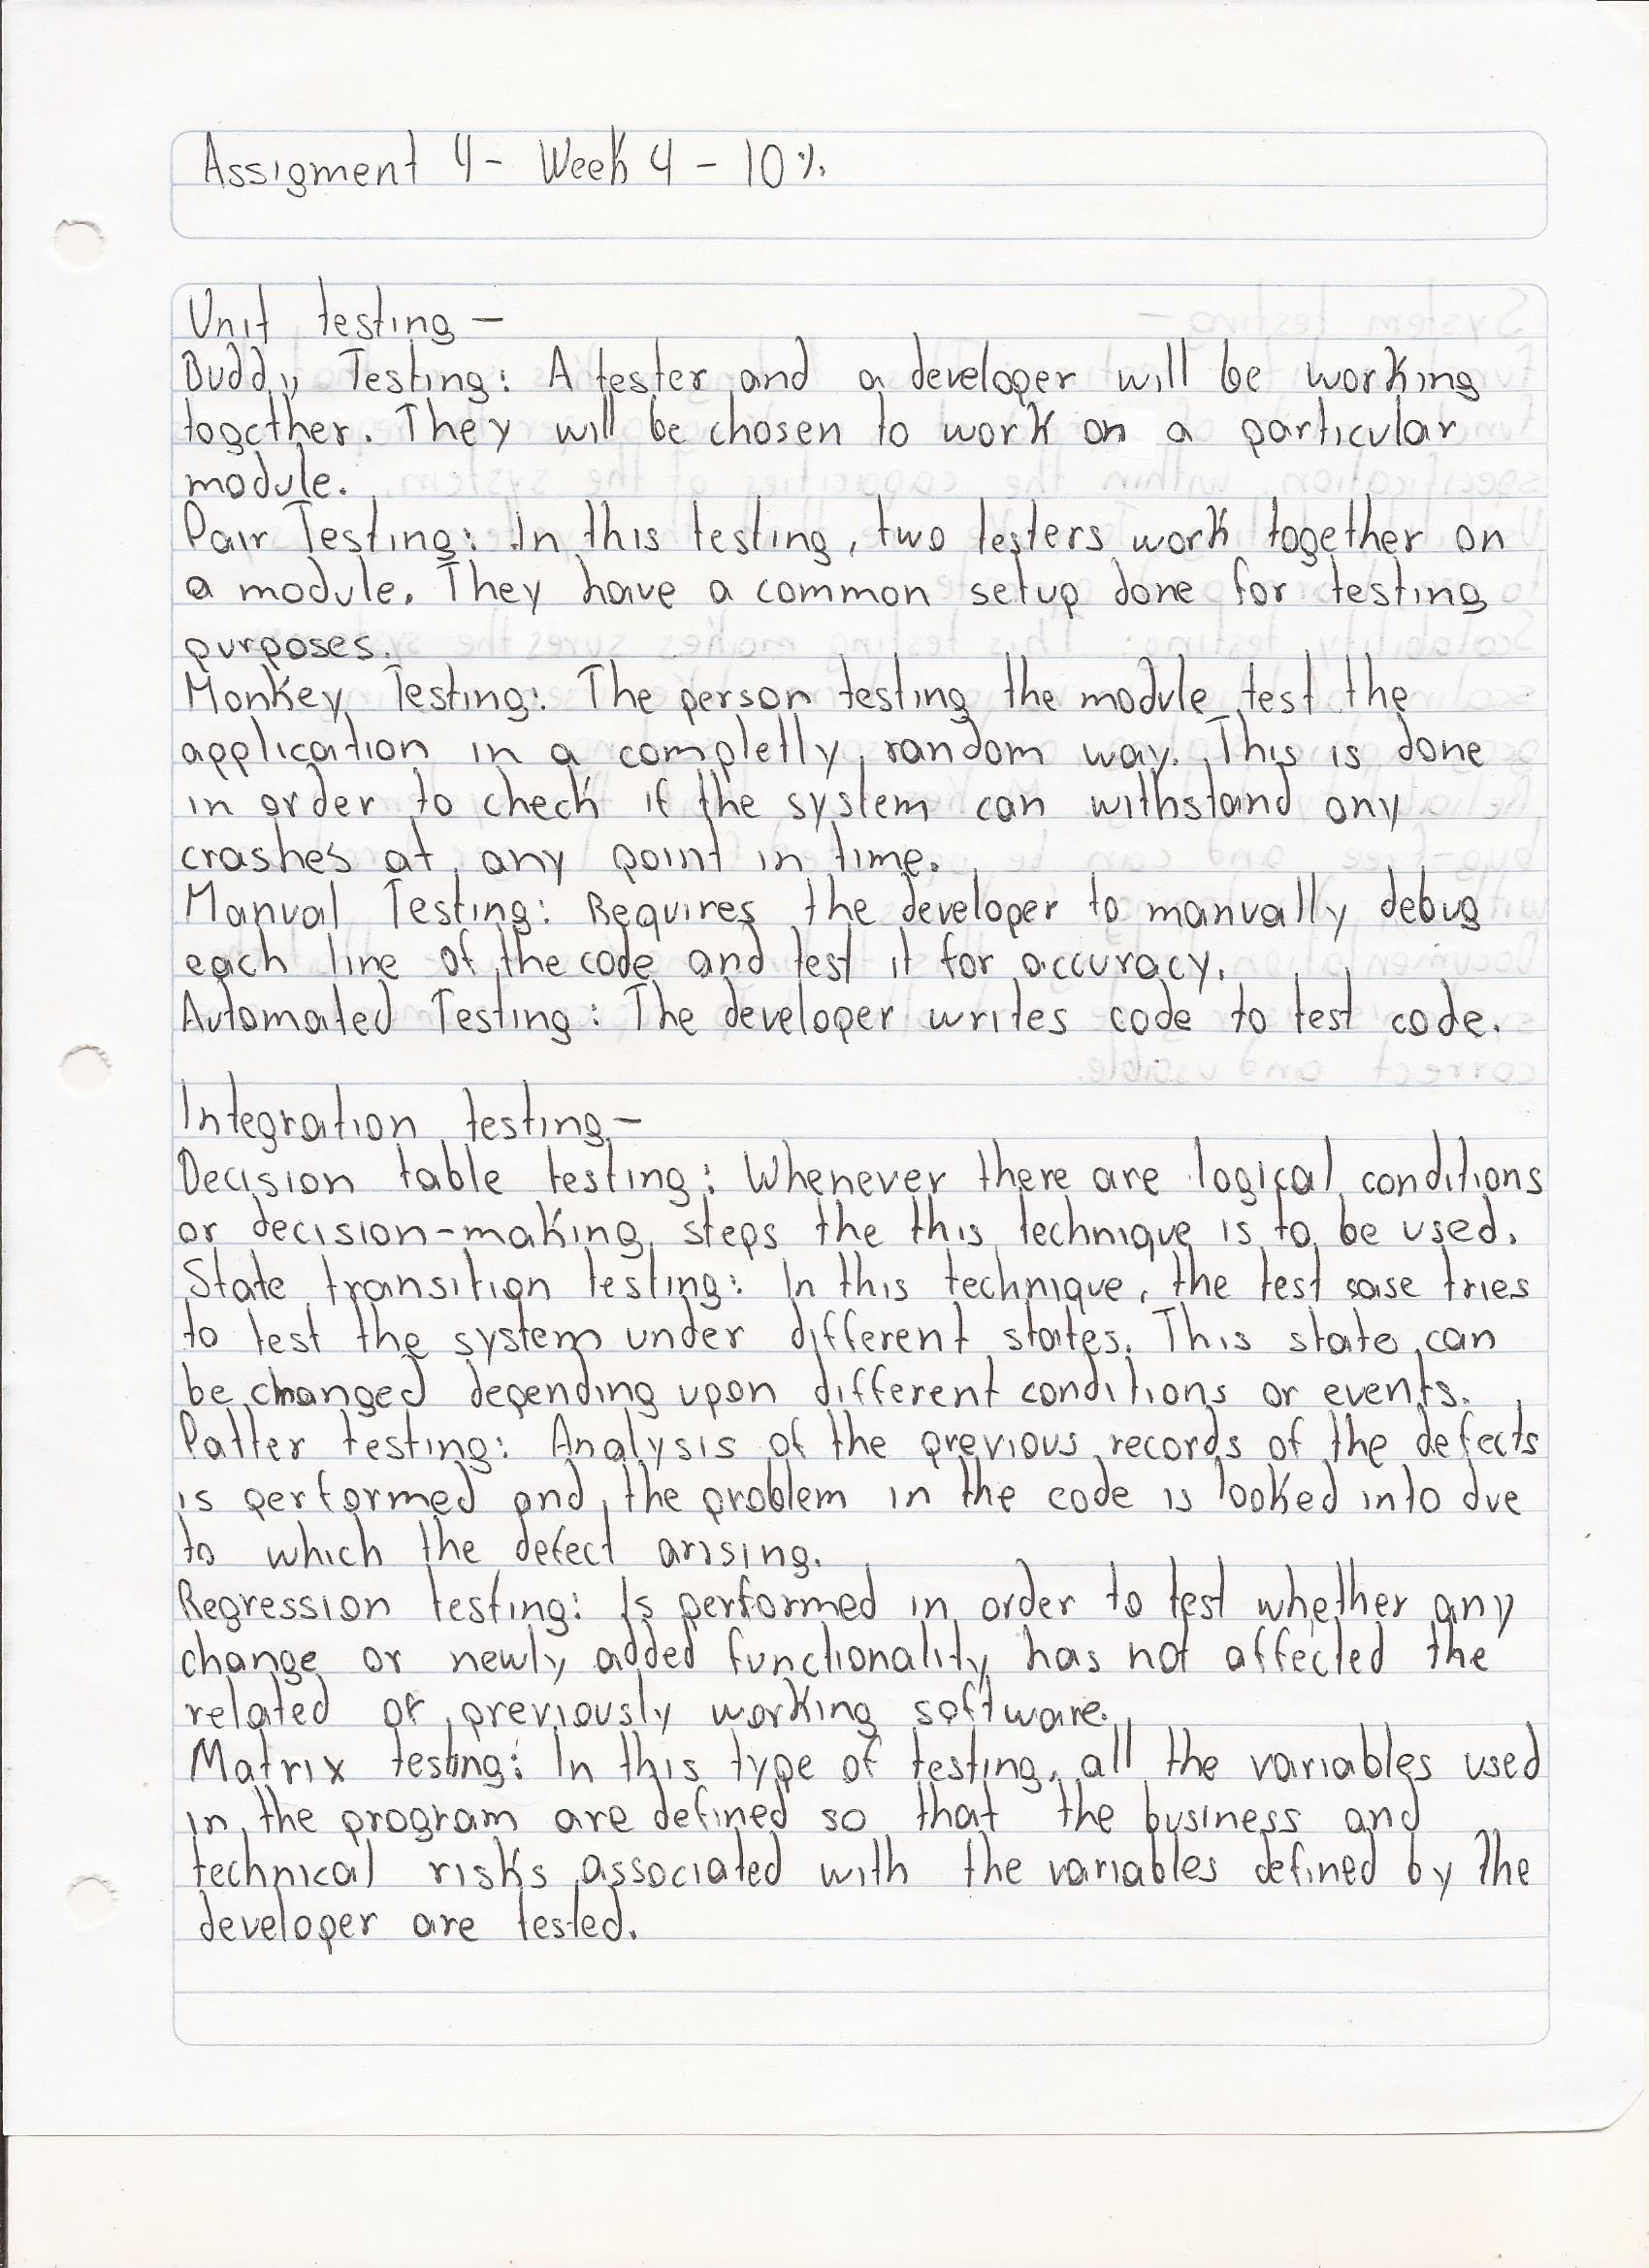 Assigment 4 - Week 4 - 10%
Unit testing -
Buddy Testing: A tester and a developer will be working
together. They will be chosen to work on a particular
module.
Pair Testing: In this testing, two testers work together on
a module. They have a common setup done for testing
purposes.
Monkey Testing: The person testing the module test the
application in a completly random way. This is done
in order to check if the system can withstand any
crashes at any point in time.
Manual Testing: Requires the developer to manually debug
each line of the code and test it for accuracy.
Automated Testing: The developer writes code to test code.
Integration testing -
Decision table testing: Whenever there are logical conditions
or decision-making steps the this technique is to be used.
State transition testing: In this technique, the test case tries
to test the system under different states. This state can
be changed depending upon different conditions or events.
Patter testing: Analysis of the previous records of the defects
is performed and the problem in the code is looked into due
to which the defect arising.
Regression testing: Is performed in order to test whether any
change or newly added functionality has not affected the
related or previously working software.
Matrix testing: In this type of testing, all the variables used
in the program are defined so that the business and
technical risks associated with the variables defined by the
developer are tested.